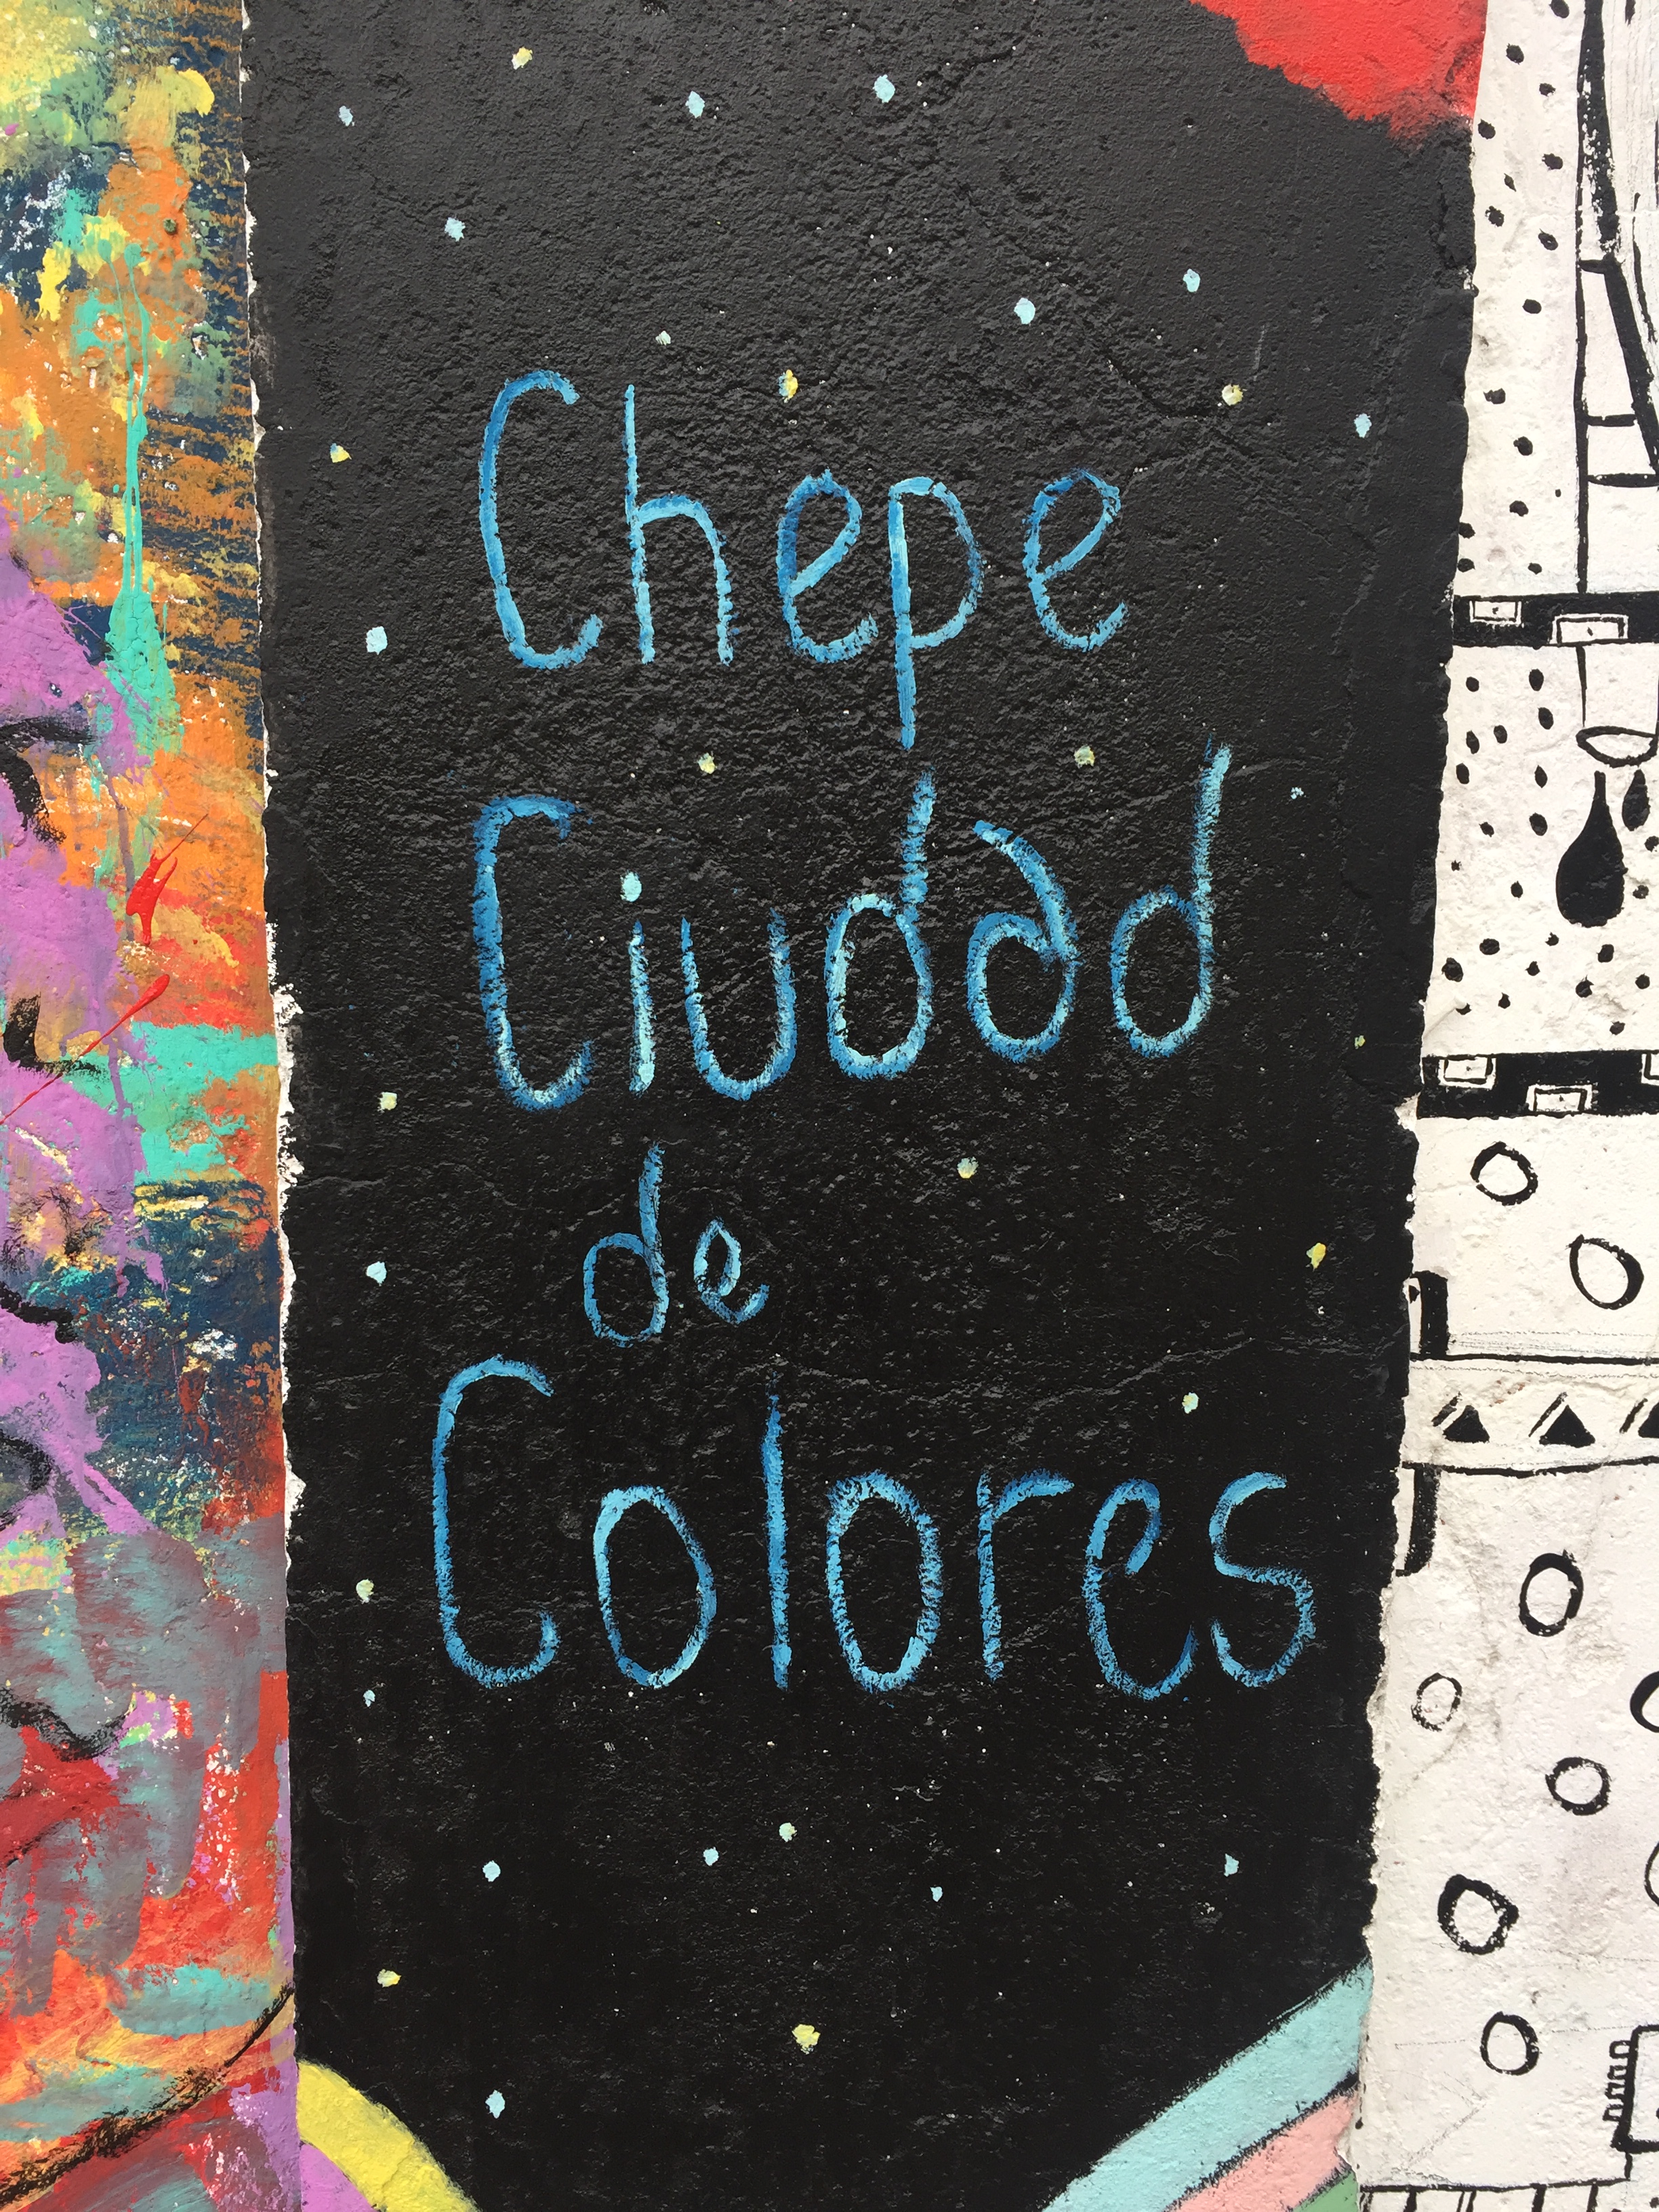 Chepe
Ciudad
de
Colores